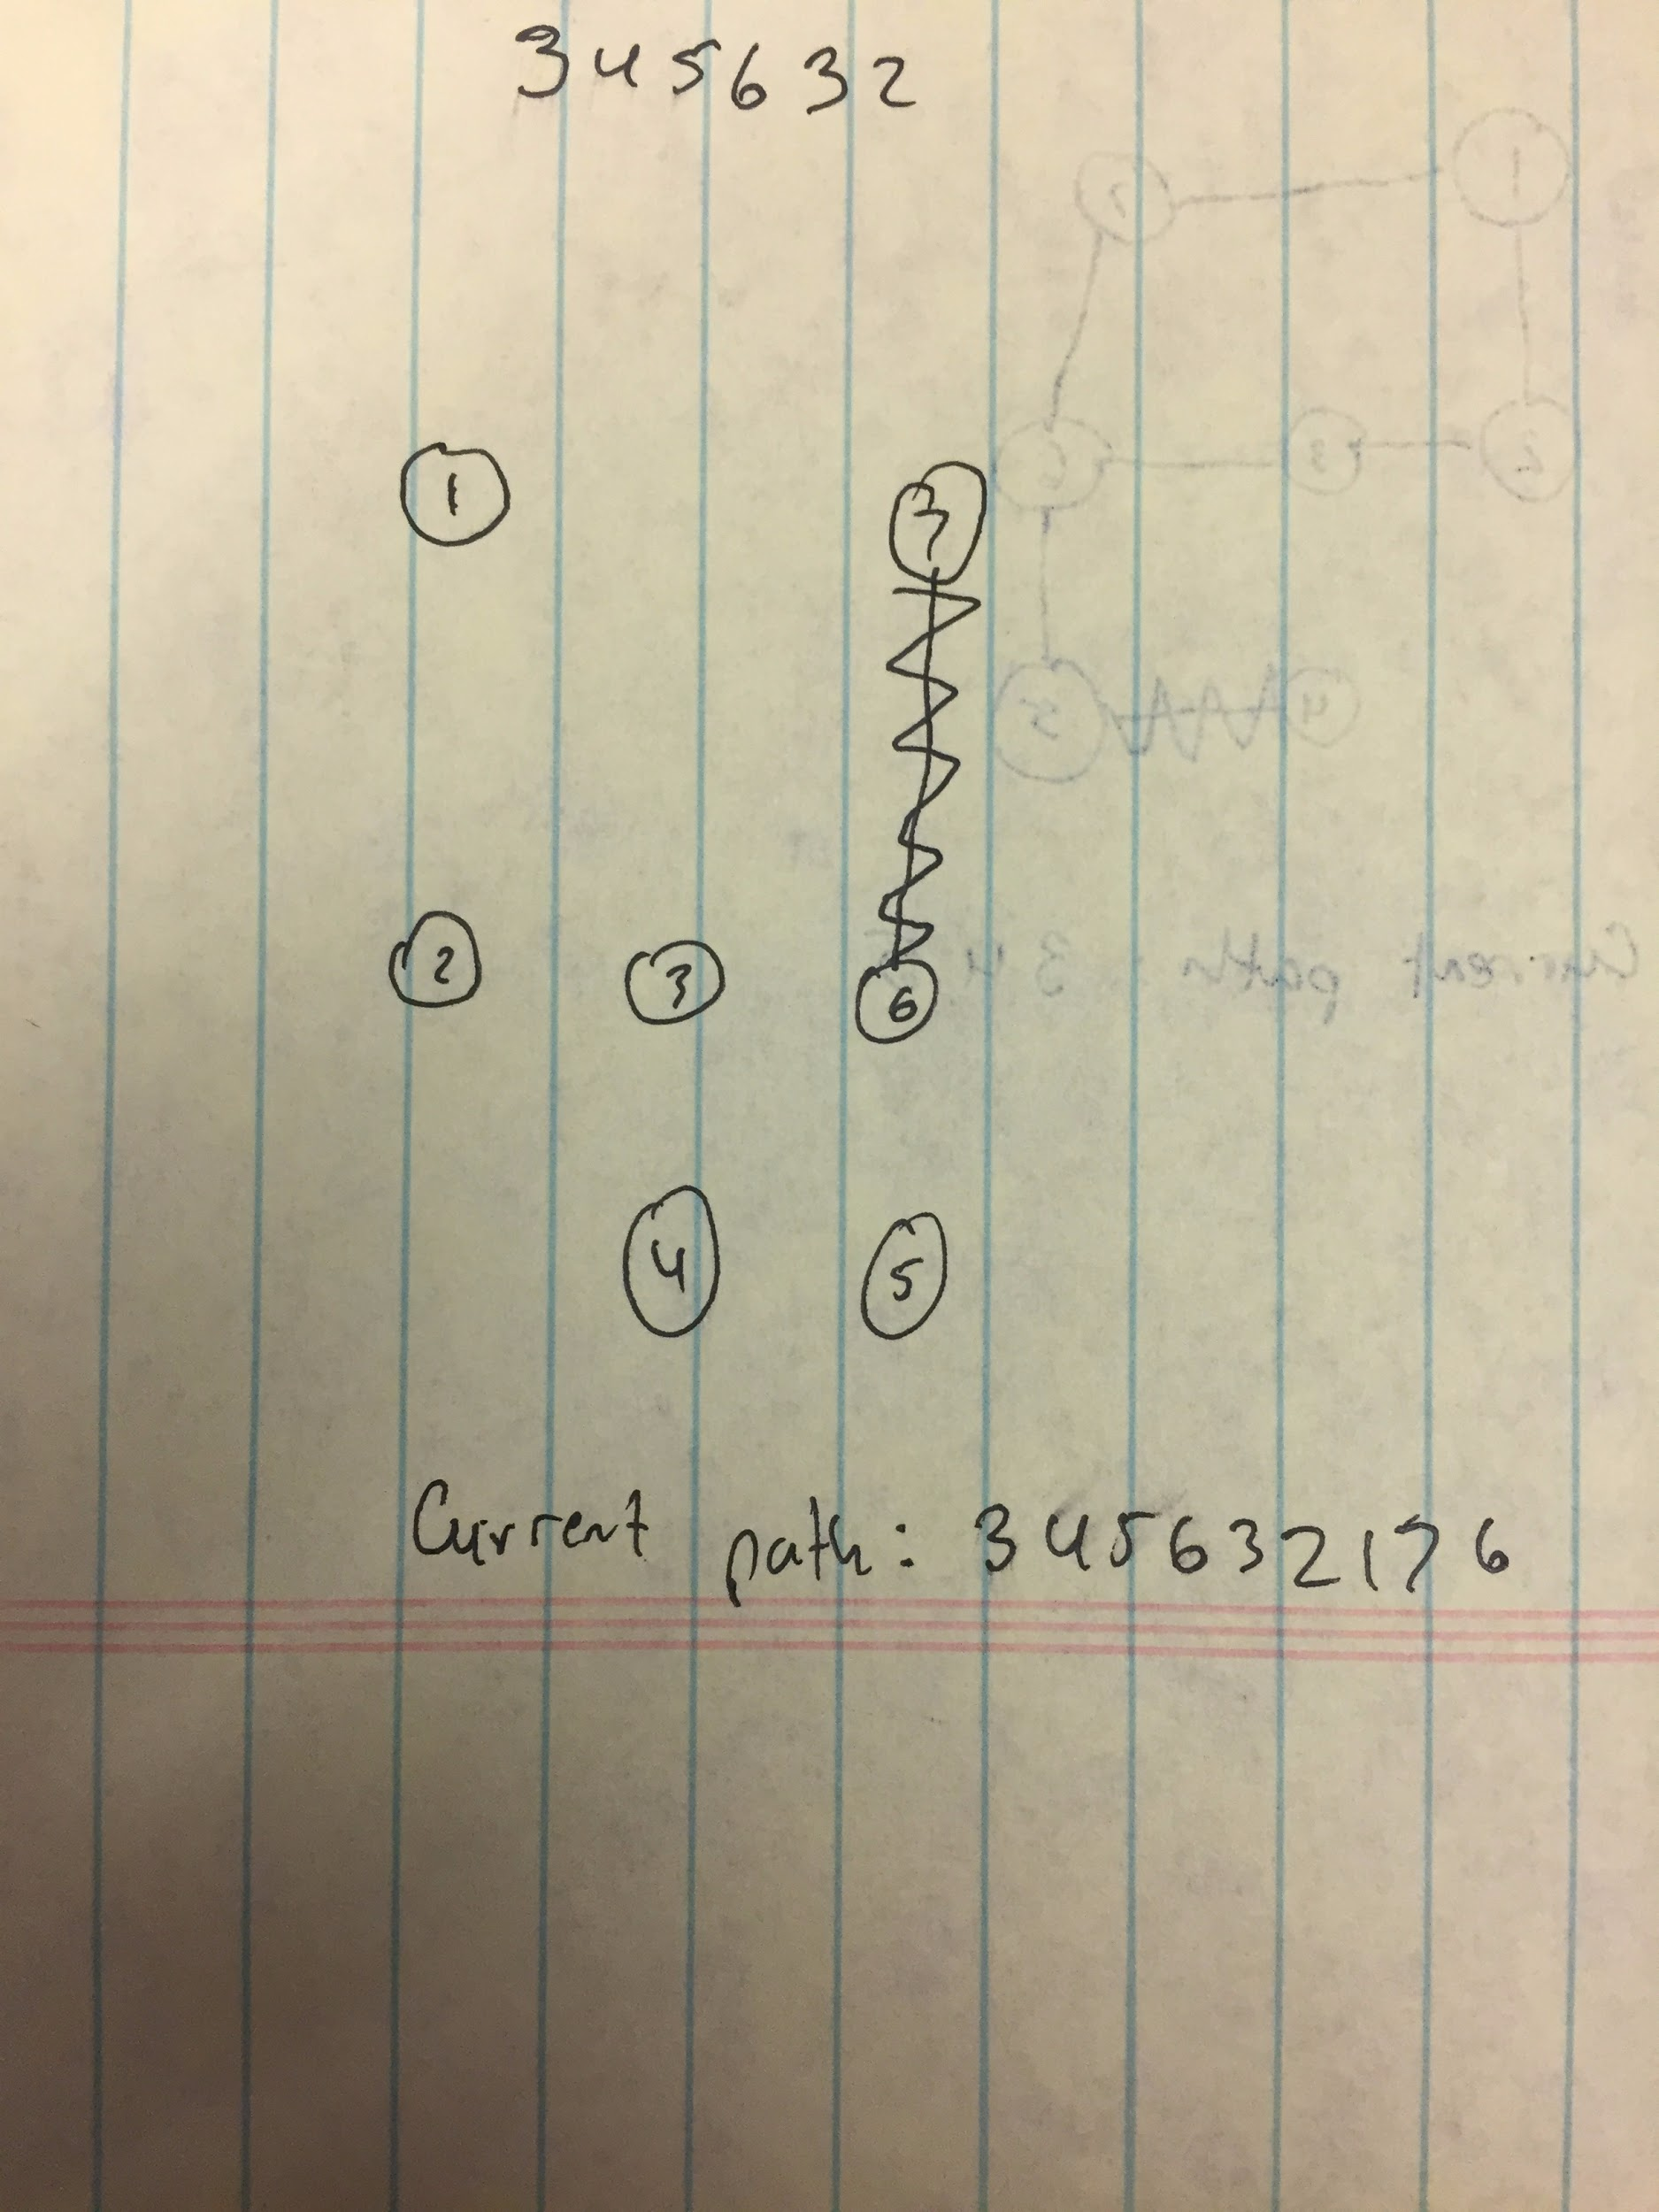 3 4 5 6 3 2
1
7
2 3 6
4 5
Current path: 3 4 5 6 3 2 1 7 6